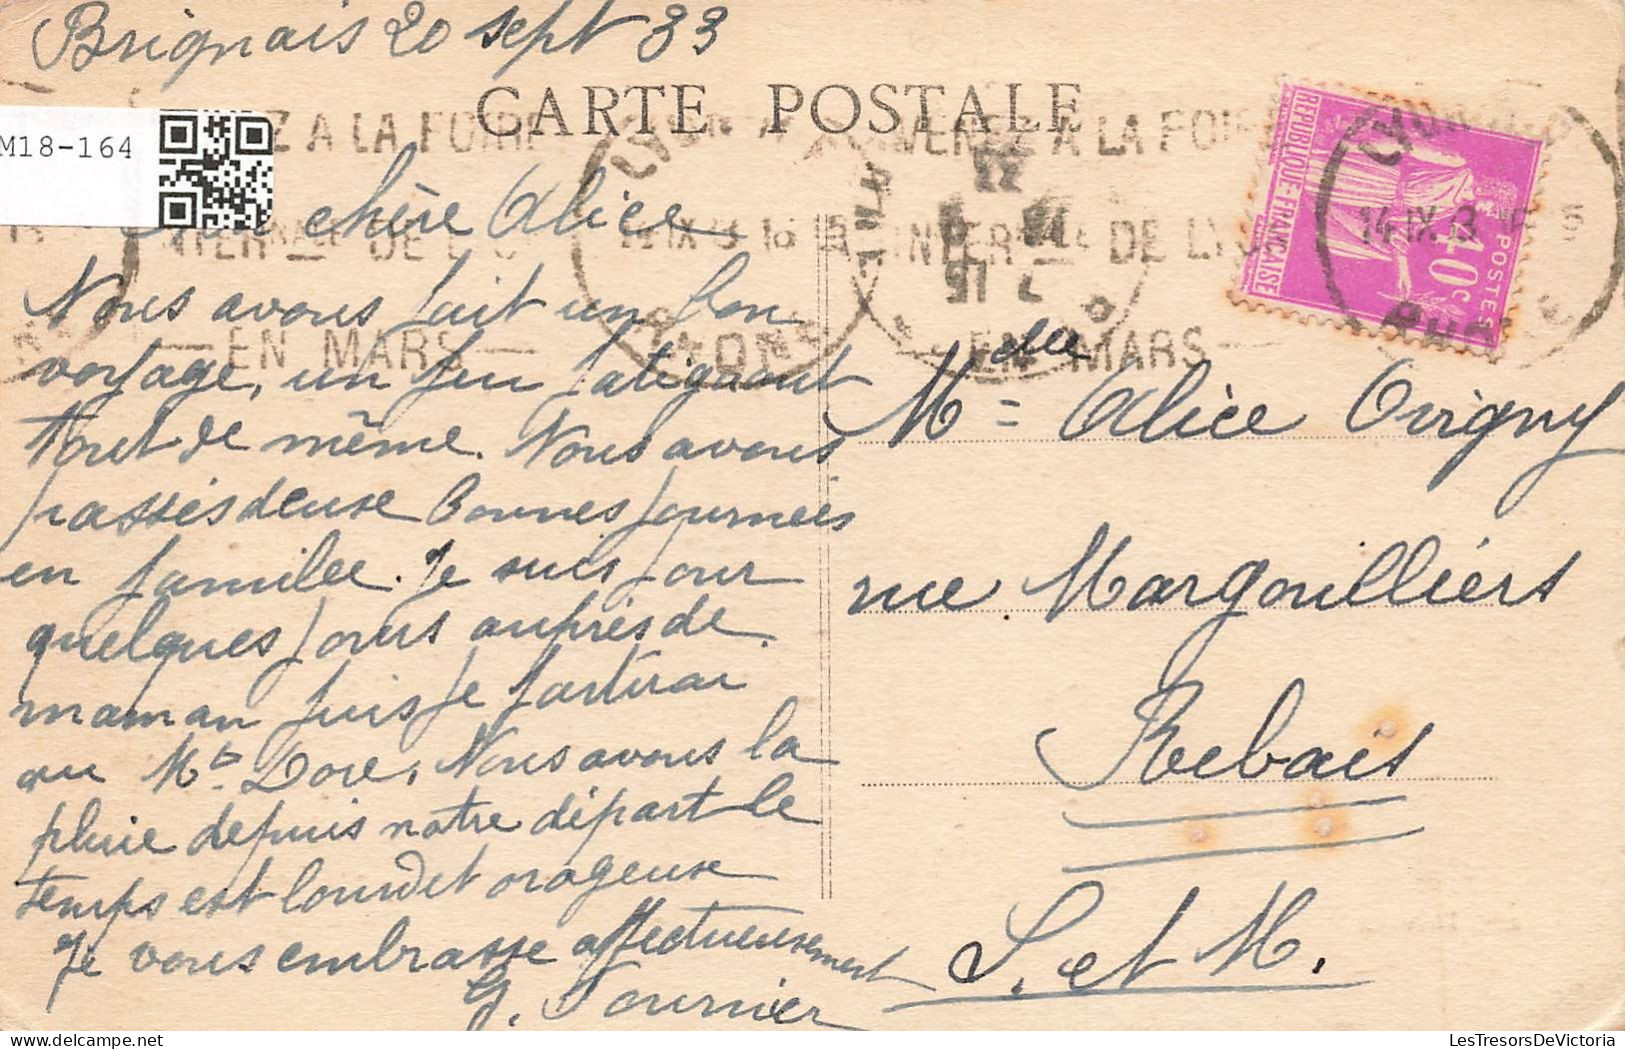 Brignais 20 sept 33
CARTE POSTALE
M18-164
Z A LA FOIRE
VENEZ A LA FOIRE
INTERNle DE LYON
EN MARS
EN MARS
LYON
14 IX 3
RHONE
REPUBLIQUE-FRANÇAISE
POSTES
40c
chère Alice
Nous avons fait un bon
voyage, un peu fatiguant
tout de même. Nous avons
passés deuse bonnes journées
en familee. Je suis pour
quelques jours auprès de
maman puis je partirai
au Mt Dore, Nous avons la
pluie depuis notre départ le
temps est lourd et orageuse
Je vous embrasse affectueusement
G. Fournier
Mdelle = Alice Origny
rue Margouilliers
Rebais
S. et M.
LesTresorsDeVictoria.com